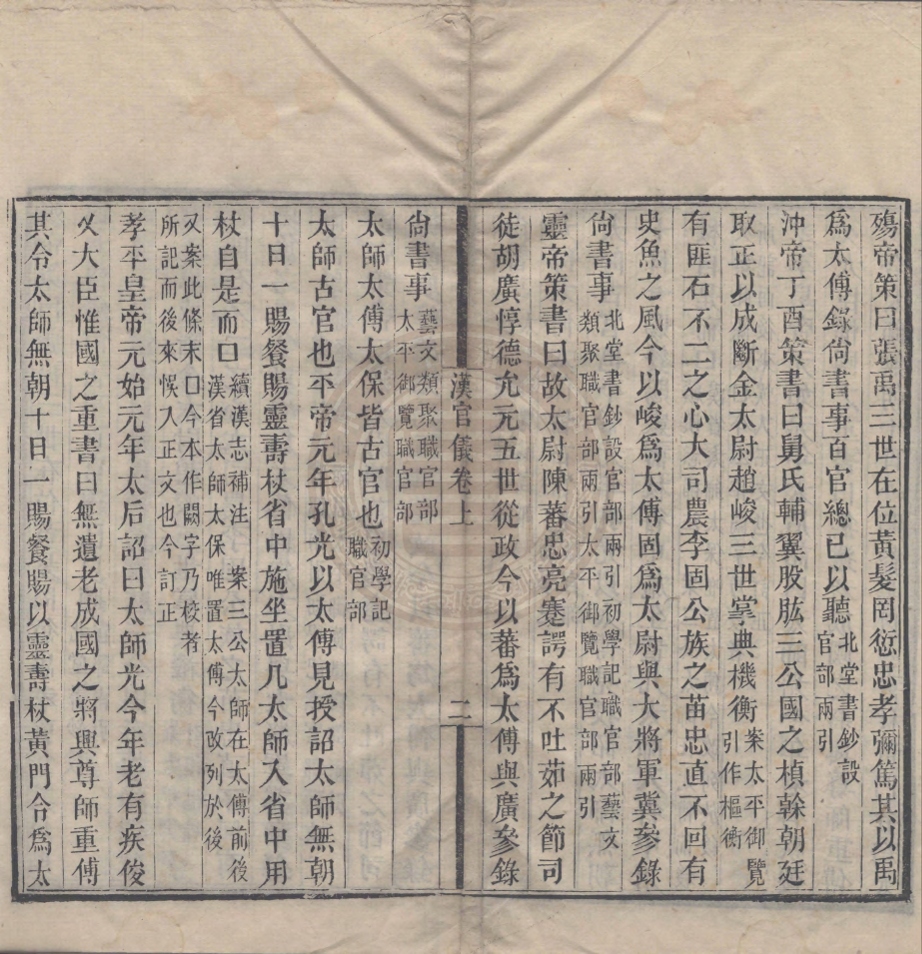 殤帝策曰張禹三世在位黃髮罔愆忠孝彌篤其以禹
爲太傅錄尙書事百官總已以聽北堂書鈔設官部兩引
沖帝丁酉策書曰舅氏輔翼股肱三公國之楨榦朝廷
取正以成斷金太尉趙峻三世掌典機衡案太平御覽引作樞衡
有匪石不二之心大司農李固公族之苗忠直不回有
史魚之風今以峻爲太傅固爲太尉與大將軍冀參錄
尙書事北堂書鈔設官部兩引初學記職官部藝文類聚職官部兩引太平御覽職官部兩引
靈帝策書曰故太尉陳蕃忠亮蹇諤有不吐茹之節司
徒胡廣惇德允元五世從政今以蕃爲太傅與廣參錄
漢官儀卷上 二
尙書事藝文類聚職官部太平御覽職官部
太師太傅太保皆古官也初學記職官部
太師古官也平帝元年孔光以太傅見授詔太師無朝
十日一賜餐賜靈壽杖省中施坐置几太師入省中用
杖自是而口續漢志補注案三公太師在太傅前後漢省太師太保唯置太傅今改列於後
又案此條末口今本作闕字乃校者所記而後來悞入正文也今訂正
孝平皇帝元始元年太后詔曰太師光今年老有疾俊
乂大臣惟國之重書曰無遺老成國之將興尊師重傅
其令太師無朝十日一賜餐賜以靈壽杖黃門令爲太